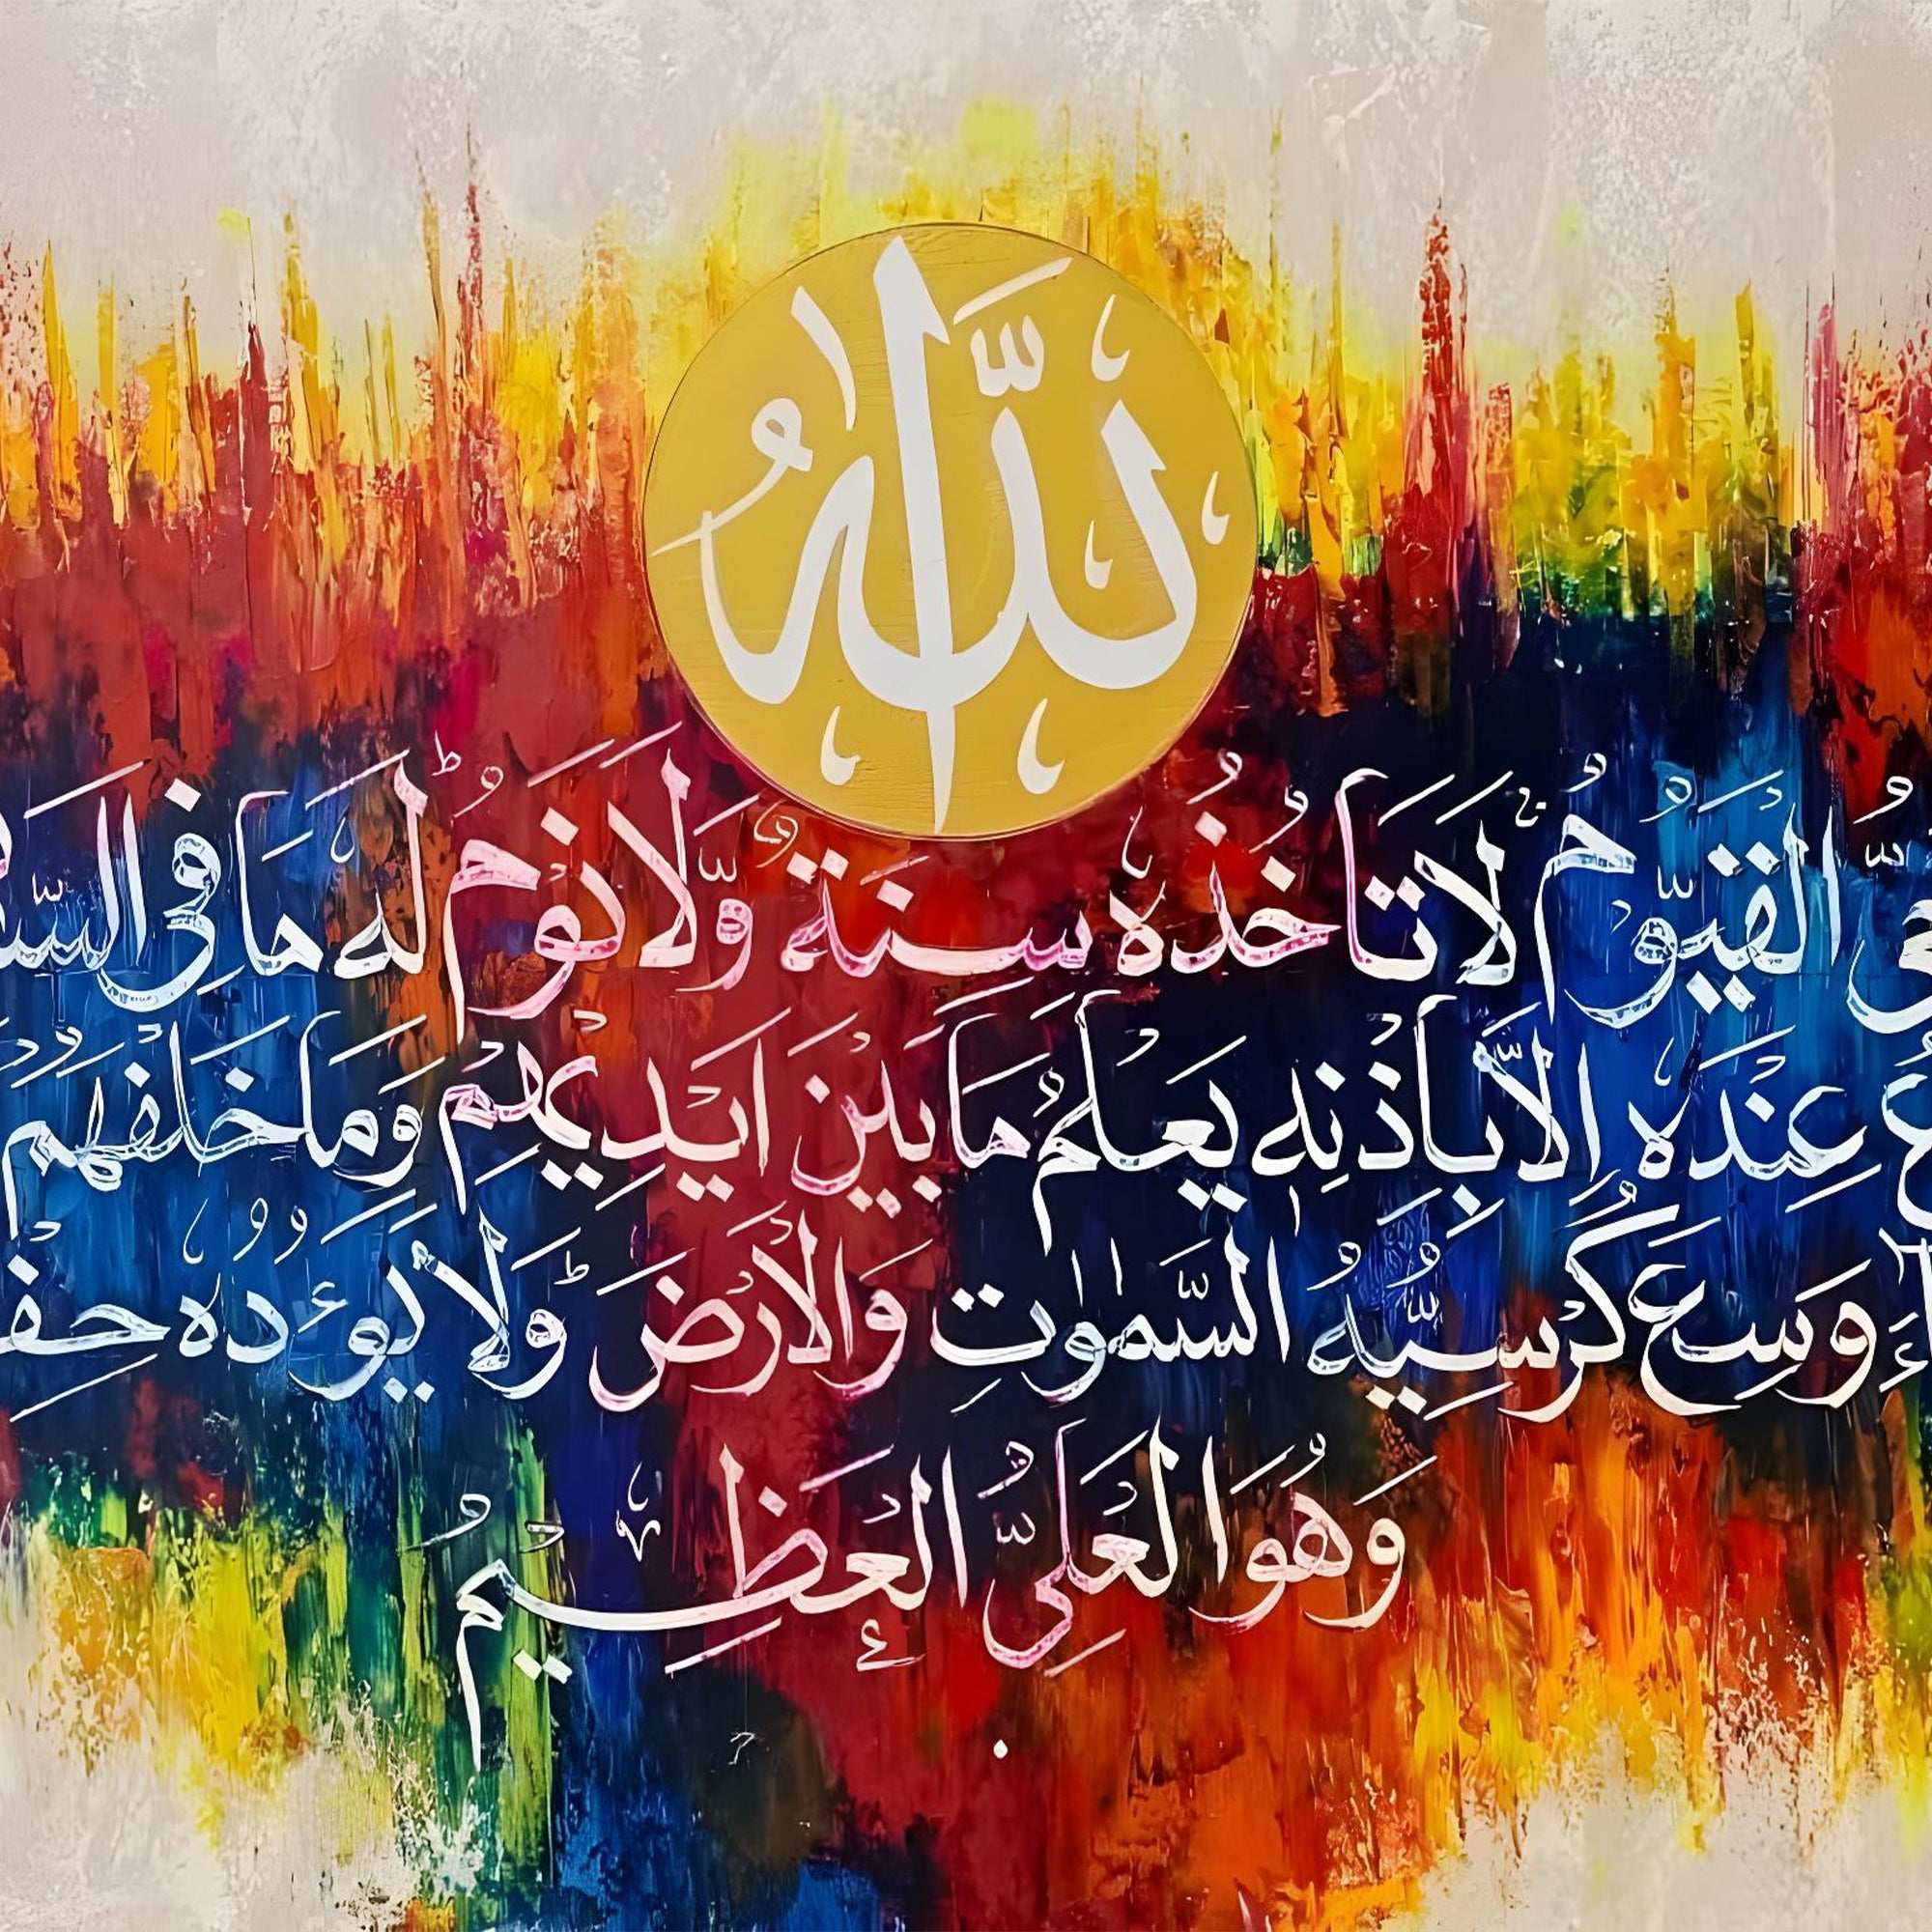 الله
الْقَيُّوْمُ لَا تَاْخُذُهٗ سِنَةٌ وَّلَا نَوْمٌ لَهٗ مَا فِی
عِنْدَهٗ اِلَّا بِاِذْنِهٖ يَعْلَمُ مَا بَيْنَ اَيْدِيْهِمْ وَمَا خَلْفَهُمْ
وَسِعَ كُرْسِيُّهُ السَّمٰوٰتِ وَالْاَرْضَ وَلَا يَـُٔوْدُهٗ
وَهُوَ الْعَلِیُّ الْعَظِيْمُ